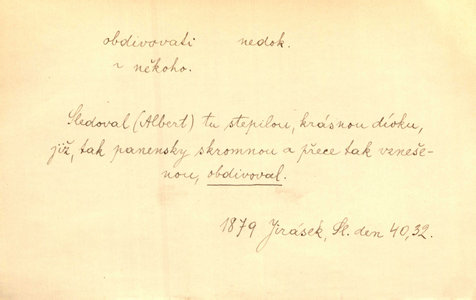 obdivovati nedok.
~ někoho.
Sledoval (Albert) tu stepilou, krásnou dívku,
již, tak panensky skromnou a přece tak vzneše-
nou, obdivoval.
1879 Jirásek, Sl. den 40, 32.